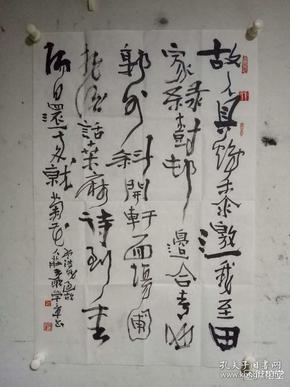 故人具鷄黍邀我至田
家綠樹邨邊合青山
郭外斜開軒面場圃
把酒話桑麻待到重
陽日還来就菊花
孔夫子旧书网